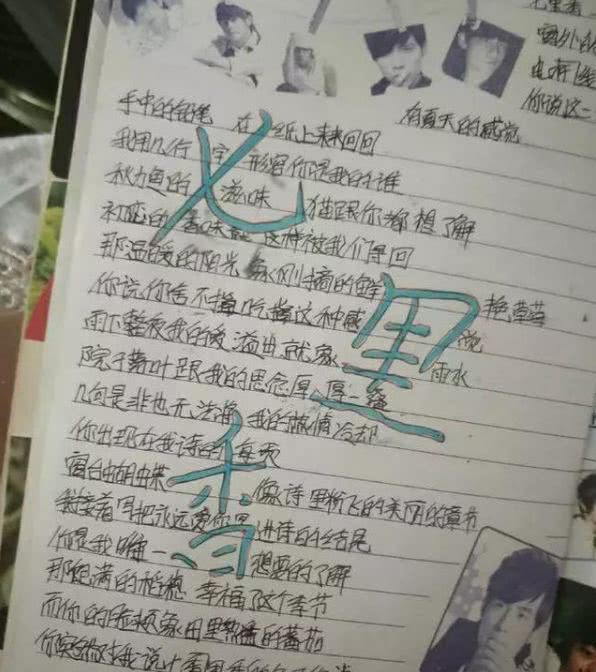 七里香
有夏天的感觉
手中的铅笔 在纸上来来回回
我用几行字形容你是我的谁
秋刀鱼的滋味 猫跟你都想了解
初恋的香味 这种被我们寻回
那温暖的阳光 象刚摘的鲜艳草莓
你说你舍不得吃掉这种感觉
雨下整夜我的爱溢出就象雨水
院子落叶跟我的思念厚厚一叠
几句是非也无法将我的热情冷却
你出现在我诗的每一页
窗台 蝴蝶 象诗里纷飞的美丽的章节
我接着写把永远爱你写进诗的结尾
你是我唯一想要的了解
那饱满的稻穗 幸福了这个季节
而你的脸颊象田里熟透的蕃茄
你突然对我说七里香
窗外的
电线
你说这一